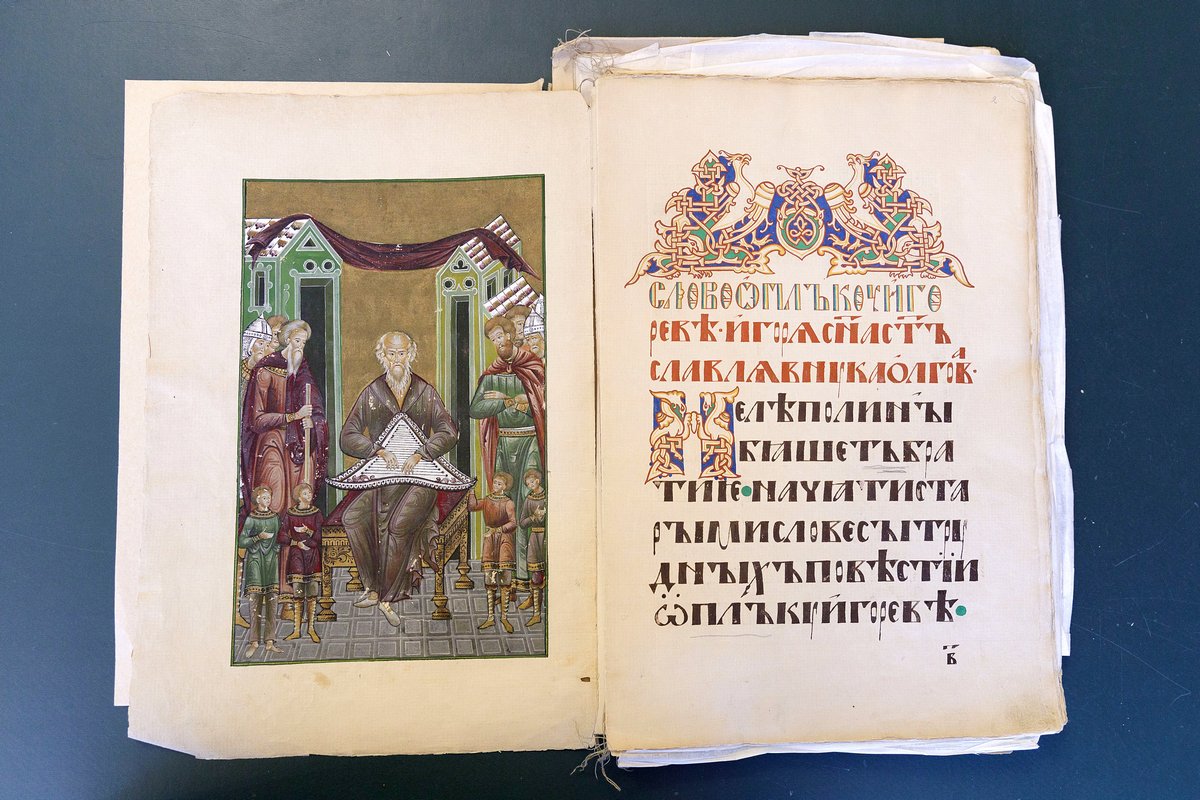 2
СЛОВОѼПЛЪКОУИГО
РЕВѢ·ИГОРѦСН҃АСТ҃Ъ
СЛАВЛѦВНꙊКАОЛГОВА·
НЕЛѢПОЛИНЫ
БꙖШЕТЪБРА
ТИѤ·НАЧꙖТИСТА
РЫМИСЛОВЕСЫТРꙊ
ДНЫХЪПОВѢСТІИ
ѼПЛЪКꙊИГОРЕВѢ·
В҃